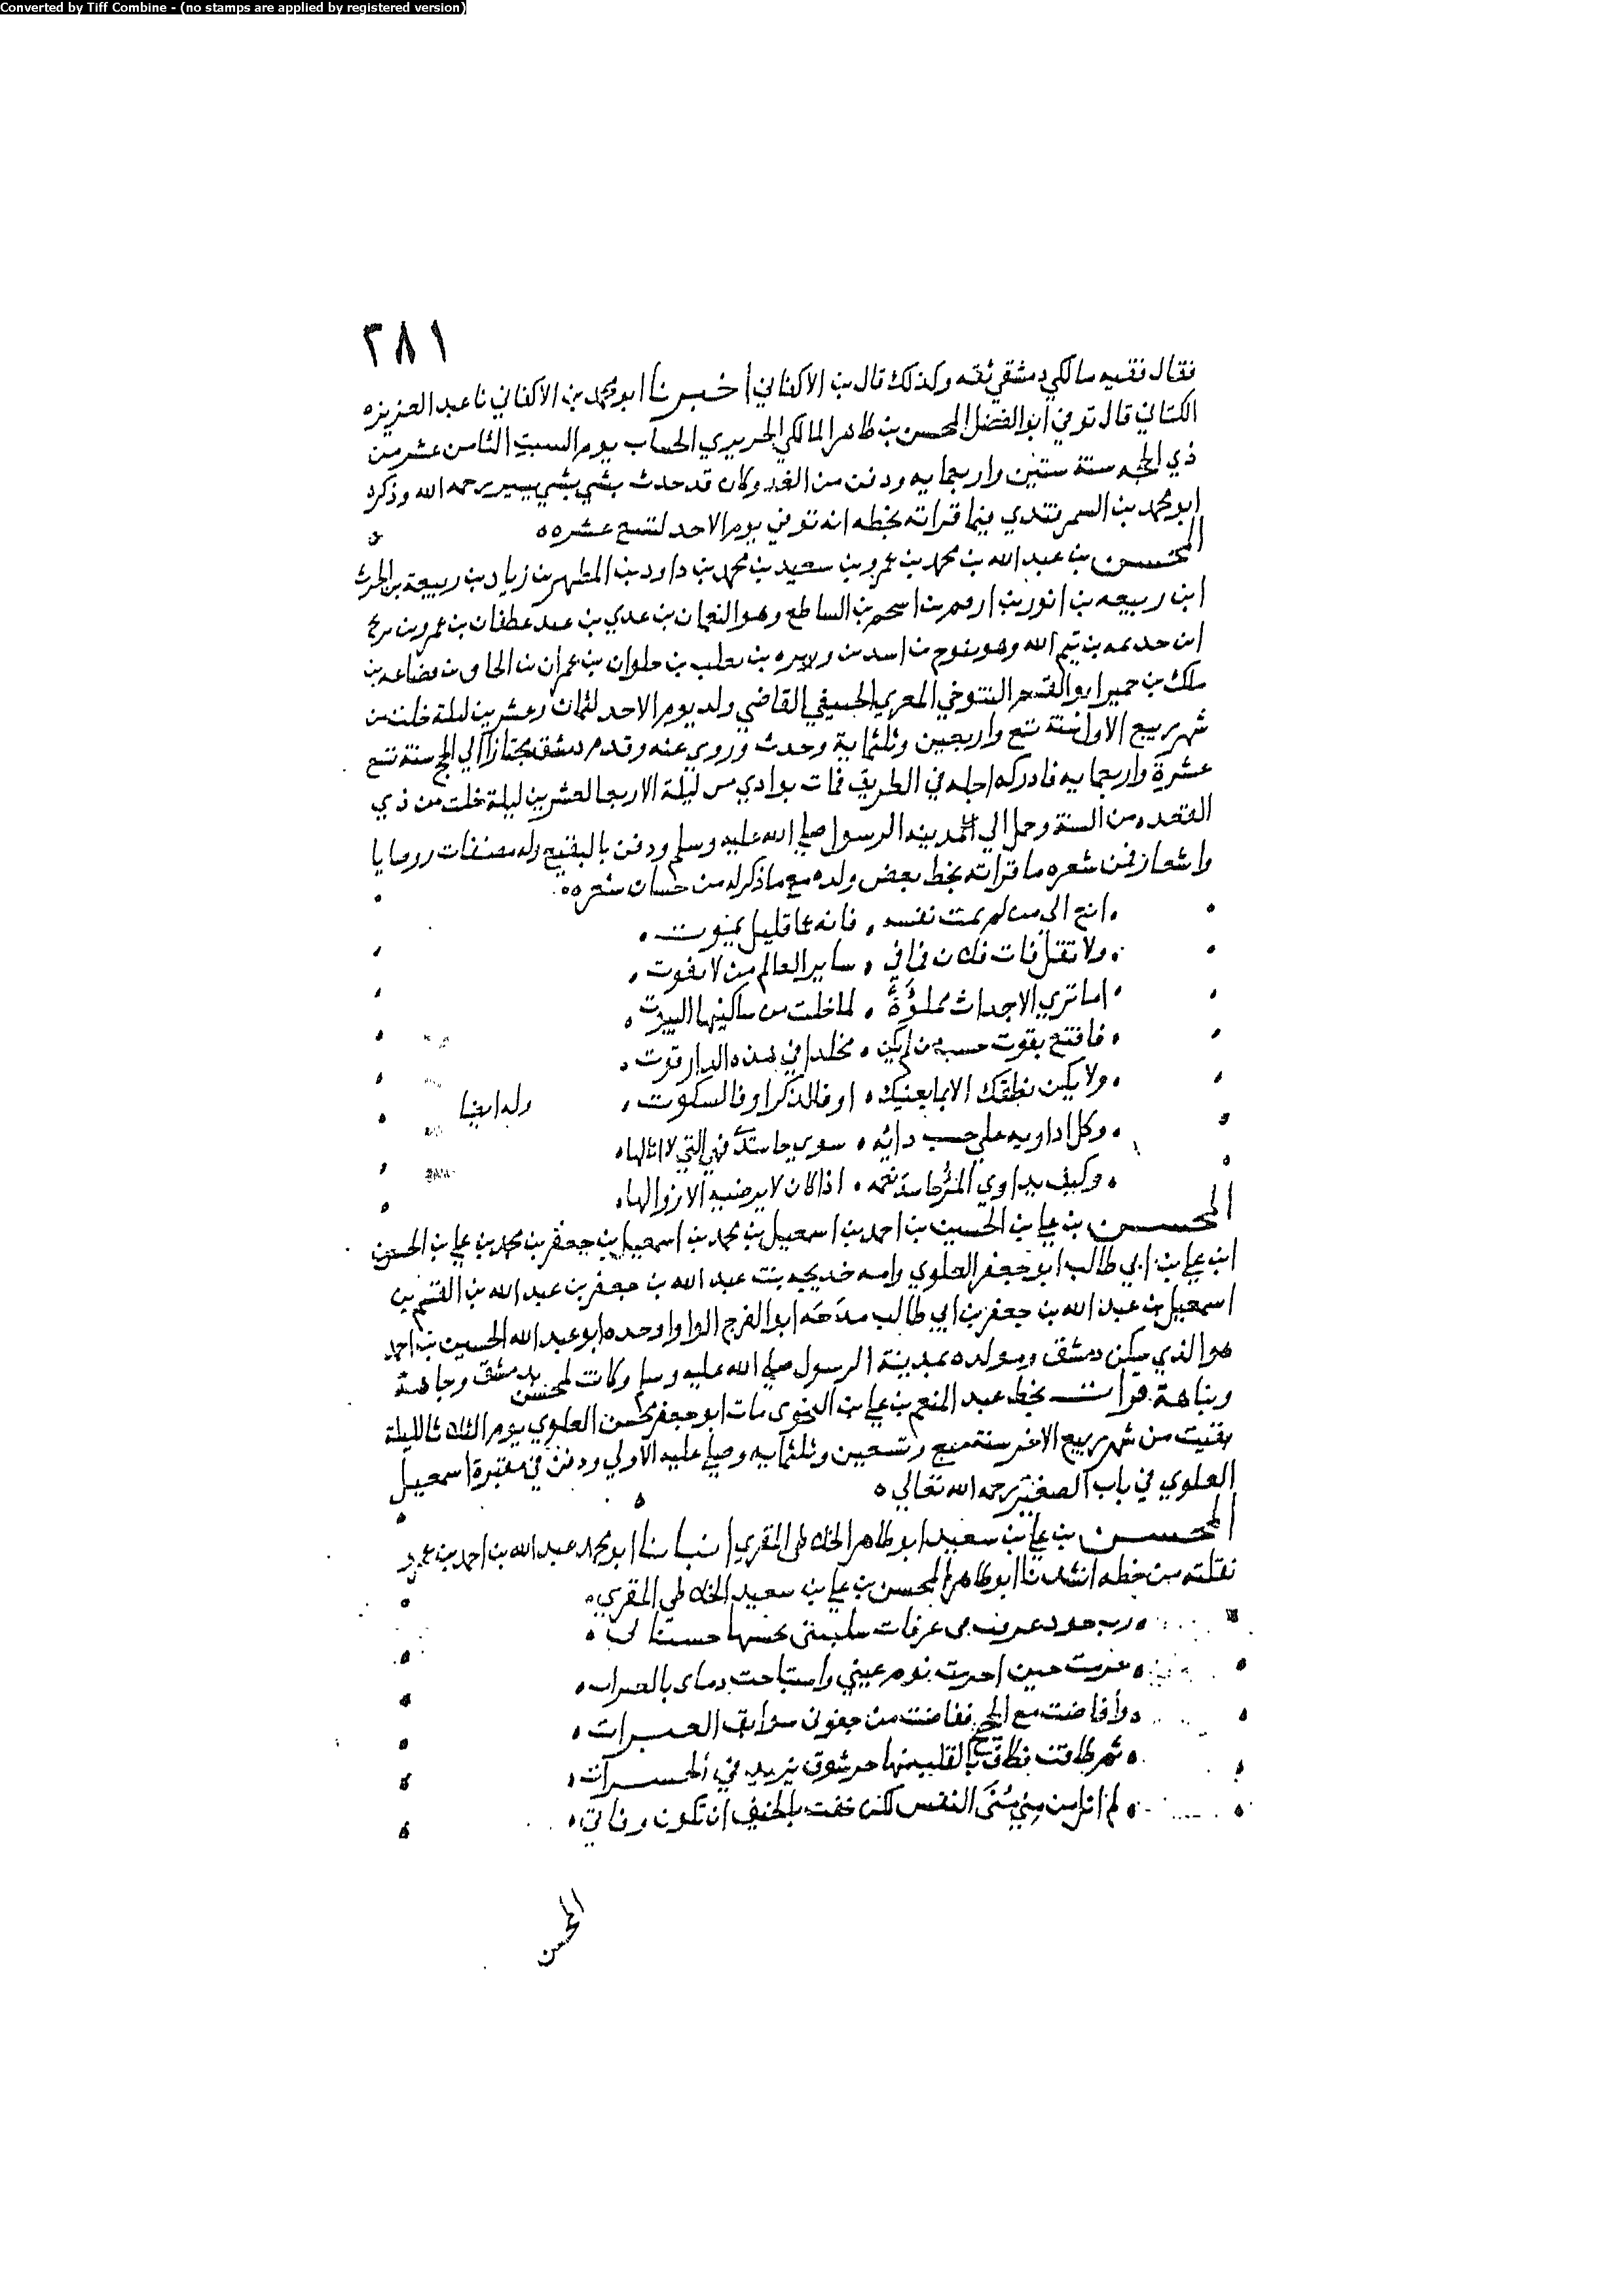 Converted by Tiff Combine - (no stamps are applied by registered version)
٣٨١
فقال فقيه مالكي دمشقي ثقه وكذلك قال بن الاكفاني اخبرنا ابو محمد بن الاكفاني نا عبد العزيز
الكتاني قال توفي ابو الفضل المحسن بن طاهر المالكي الحريري الحساب يوم السبت الثامن عشر من
ذي الحجه سنة ستين واربعمايه ودفن من الغد وكان قد حدث بشي يسير رحمه الله وذكر
ابو محمد بن السمرقندي فيما قراته بخطه انه توفي يوم الاحد لتسع عشره
المحسن بن عبد الله بن محمد بن عمرو بن سعيد بن محمد بن داود بن المطهر بن زياد بن ربيعة بن الحرث
ابن ربيعه بن انور بن ارقم بن اسحم بن الساطع وهو النعمان بن عدي بن عبد غطفان بن عمرو بن بريح
ابن جديمه بن تيم الله وهو تنوخ بن اسد بن وبره بن تغلب بن حلوان بن عمران بن الحاف بن قضاعه بن
ملك بن حمير ابو القسم التنوخي المعري الحنيفي القاضي ولد يوم الاحد لثمان وعشرين ليلة خلت من
شهر ربيع الاول سنة تسع واربعين وثلثماية وحدث وروي عنه وقدم دمشق مجتازا الي الحج سنة تسع
عشرة واربعمايه فادركه اجله في الطريق فمات بوادي مر ليلة الاربعا لعشرين ليلة خلت من ذي
القعده من السنة وحمل الي مدينه الرسول صلي الله عليه وسلم ودفن بالبقيع وله مصنفات ووصايا
واشعار فمن شعره ما قراته بخط بعض ولده مع ما ذكر له من حسان شعره
انع الى من لم يمت نفسه فانه عما قليل يموت
ولا تقل فات فلان فما في ساير العالم من لا يفوت
اما تري الاجداث مملؤة لما خلت من ساكنيها البيوت
فاقنع بقوت حسب من لم يكن مخلدا في هذه الدار قوت
ولا يكن نطقك الا بما يعنيك او فالذكر او فالسكوت
وله ايضا
وكل اداويه علي حسب دائه سوي حاسد فهي التي لا انالها
وكيف يداوي المرُ حاسد نعمه اذا كان لا يرضيه الا زوالها
المحسن بن علي بن الحسين بن احمد بن اسمعيل بن محمد بن اسمعيل بن جعفر بن محمد بن علي بن الحسين
ابن علي بن ابي طالب ابو جعفر العلوي وامه خديجه بنت عبد الله بن جعفر بن عبد الله بن القسم بن
اسمعيل بن عبد الله بن جعفر بن ابي طالب مدحه ابو الفرج الواوا وجده ابو عبد الله الحسين بن احمد
هو الذي سكن دمشق ومولده بمدينة الرسول صلي الله عليه وسلم وكانت لمحسن بدمشق وجاهة
ونباهة قرات بخط عبد المنعم بن علي بن النحوي مات ابو جعفر محسن العلوي يوم الثلاثا لليلة
بقيت من شهر ربيع الاخر سنة سبع وتسعين وثلثمايه وصلي عليه الاولي ودفن في مقبرة اسمعيل
العلوي في باب الصغير رحمه الله تعالي
المحسن بن علي بن سعيد ابو طاهر الخلاطي المقري انبانا ابو محمد عبد الله بن احمد بن عمر
نقلته من خطه انشدنا ابو طاهر المحسن بن علي بن سعيد الخلاطي المقري
رب خود عرفت في عرفات سلبتني بحسنها حسناتي
حرمت حين احرمت نوم عيني واستباحت دماي بالحرمات
وأفاضت مع الحجيج ففاضت من جفوني سوابق العبرات
ثم طافت فطاف بالقلب منها حر شوق يزيد في الحسرات
لم انل من مني مُنَي النفس لكن خفت بالخيف ان تكون وفاتي
المحسن